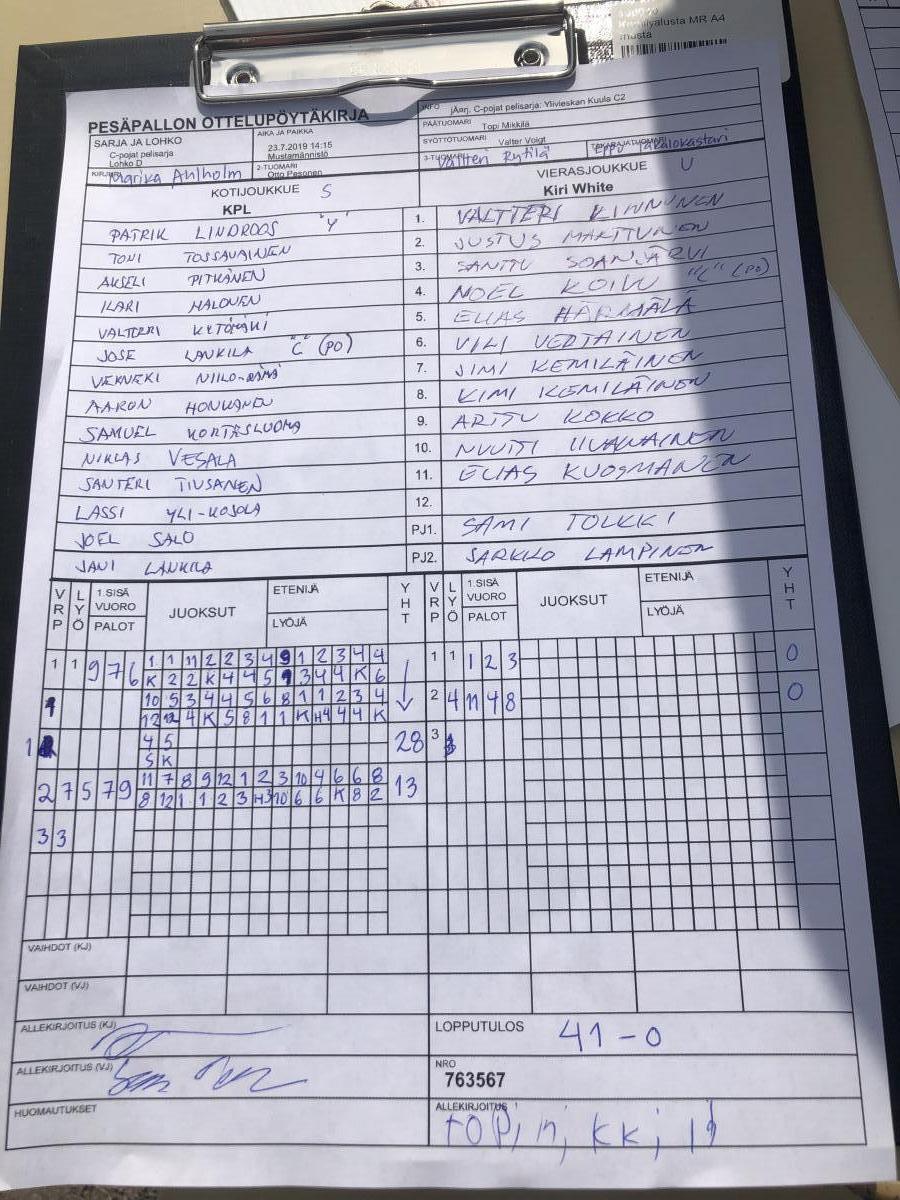 Kirjoitusalusta MR A4
musta
PESÄPALLON OTTELUPÖYTÄKIRJA
INFO jÄarj. C-pojat pelisarja: Ylivieskan Kuula C2
SARJA JA LOHKO
C-pojat pelisarja
Lohko D
AIKA JA PAIKKA
23.7.2019 14:15
Mustamännistö
PÄÄTUOMARI Topi Mikkilä
SYÖTTÖTUOMARI Valter Voigt
KIRJURI Marika Ahlholm
2-TUOMARI
Otto Pesonen
3-TUOMARI Valtteri Rytilä
TAKARAJATUOMARI Eppu Takalokastari
KOTIJOUKKUE S
KPL
VIERASJOUKKUE U
Kiri White
PATRIK LINDROOS "Y" 1. VALTTERI KINNUNEN
TONI TOSSAVAINEN 2. JUSTUS MARTTUNEN
AKSELI PITKÄNEN 3. SANTTU SOANJÄRVI
ILARI HALONEN 4. NOEL KOIVU "C" (PO)
VALTTERI KYTÖMÄKI 5. ELIAS HÄRMÄLÄ
JOSE LANKILA "C" (PO) 6. VILI VEPTAINEN
VERNERI NIILO-RÄMÄ 7. JIMI KEMILÄINEN
AARON HONKANEN 8. KIMI KEMILÄINEN
SAMUEL KORTESLUOMA 9. ARTTU KOKKO
NIKLAS VESALA 10. NUUTTI LIUKKAINEN
SANTERI TIUSANEN 11. ELIAS KUOSMANEN
LASSI YLI-KOJOLA 12.
JOEL SALO PJ1. SAMI TOLKKI
JANI LANKILA PJ2. SARKKO LAMPINEN
VRP LYÖ 1.SISÄ VUORO PALOT JUOKSUT ETENIJÄ LYÖJÄ YHT VRP LYÖ 1.SISÄ VUORO PALOT JUOKSUT ETENIJÄ LYÖJÄ YHT
1 1 9 7 6 1 1 11 2 2 3 4 9 1 2 3 4 4 1 1 1 2 3 0
K 2 2 K 4 4 5 9 3 4 4 K 6
1 10 5 3 4 4 5 6 8 1 1 2 3 4 2 4 11 4 8 0
12 12 4 K 5 8 1 1 K H4 4 4 K
1 4 5 28 3
5 K
2 7 5 7 9 11 7 8 9 12 1 2 3 10 4 6 6 8 13
8 12 1 1 2 3 H3 10 6 6 K 8 2
3 3
VAIHDOT (KJ)
VAIHDOT (VJ)
ALLEKIRJOITUS (KJ)
LOPPUTULOS 41-0
ALLEKIRJOITUS (VJ)
NRO
763567
HUOMAUTUKSET
ALLEKIRJOITUS